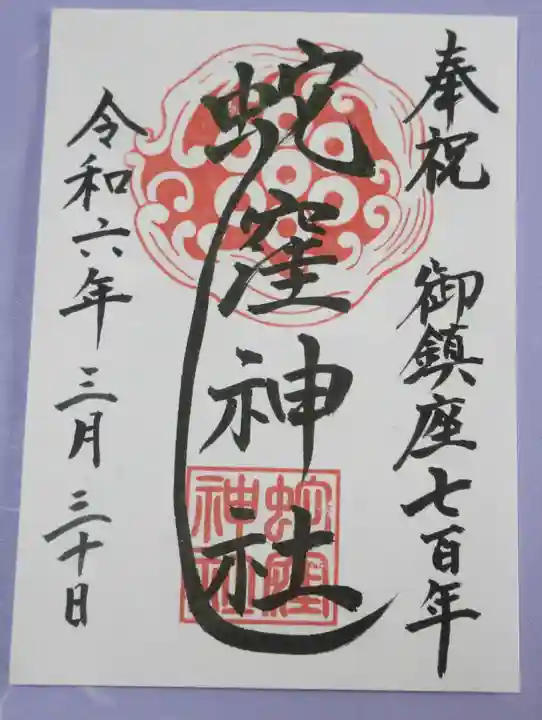 奉祝 御鎮座七百年
蛇窪神社
令和六年 三月 三十日
蛇窪
神社